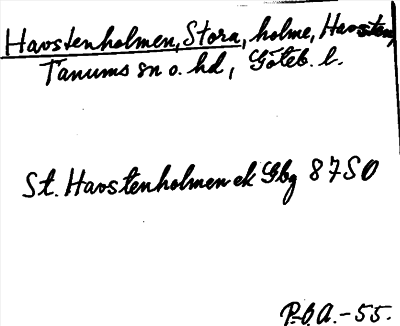 Havstenholmen, Stora, holme, Havsten,
Tanums sn o. hd, Göteb. l.
St. Havstenholmen ek Gbg 87SO
P.G.A.-55.